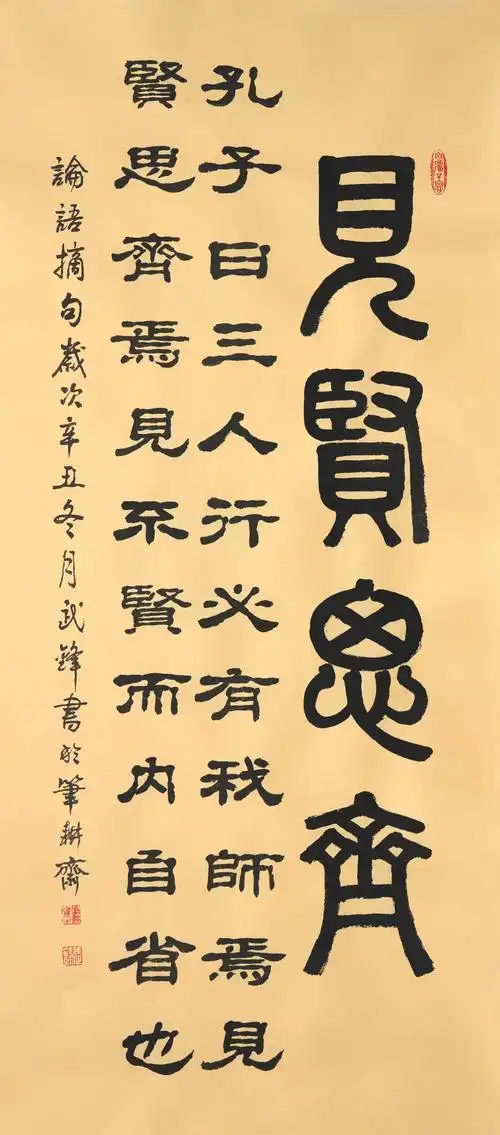 見賢思齊
孔子曰三人行必有我師焉見
賢思齊焉見不賢而内自省也
論語摘句歲次辛丑冬月武鋒書於筆耕齋